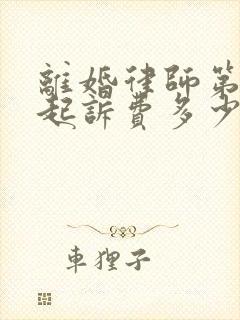 離婚律師第
起訴費多少
車狸子